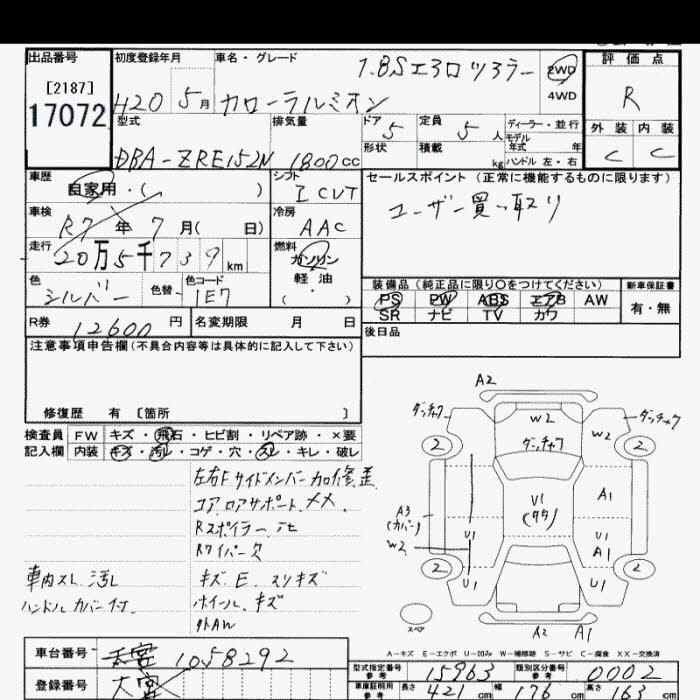 出品番号 初度登録年月 車名・グレード 評価点
[2187]
17072
H20 5月 カローラルミオン 1.8Sエアロツアラー
2WD
4WD
R
外装 内装
C C
型式 排気量 ドア 定員 ディーラー・並行
5 5人 モデル年式 年
形状 積載 kg ハンドル 左・右
DBA-ZRE152N 1800cc
車歴 シフト
自家用・( ) I CVT
セールスポイント(正常に機能するものに限ります)
ユーザー買い取り
車検 冷房
R7年 7月( 日) AAC
走行 燃料
20万5千739km ガソリン
軽油
( )
色 色替 色コード
シルバー 1E7
装備品(純正品に限り○をつけてください) 新車保証書
PS PW ABS エアB AW 有・無
SR ナビ TV カワ
R券 12600円 名変期限 月 日
後日品
注意事項申告欄(不具合内容等は具体的に記入して下さい)
修復歴 有 [箇所 ]
検査員 FW キズ・飛石・ヒビ割・リペア跡・×要
記入欄 内装 キズ・汚レ・コゲ・穴・スレ・キレ・破レ
左右Fサイドメンバー加修歪
コア、ロアサポート、××、
Rスポイラー、
Rワイパー欠
車内スレ、汚レ キズ、E、スリキズ
ハンドルカバー付 ホイール、キズ
外AW
A2
ダッチャク W2 W2 ダッチャク
ダッチャク
2 2
A3 (カバー) U1 (タタ) A1
W2 U1 U1 A1
2 U1 U1 2
スペア A2 A1
A-キズ E-エクボ U-凹み W-補修跡 S-サビ C-腐食 XX-交換済
車台番号 1058292
登録番号
型式指定番号 参考 15963 類別区分番号 参考 0002
車庫証明用 参考 長さ 421cm 幅 176cm 高さ 163cm